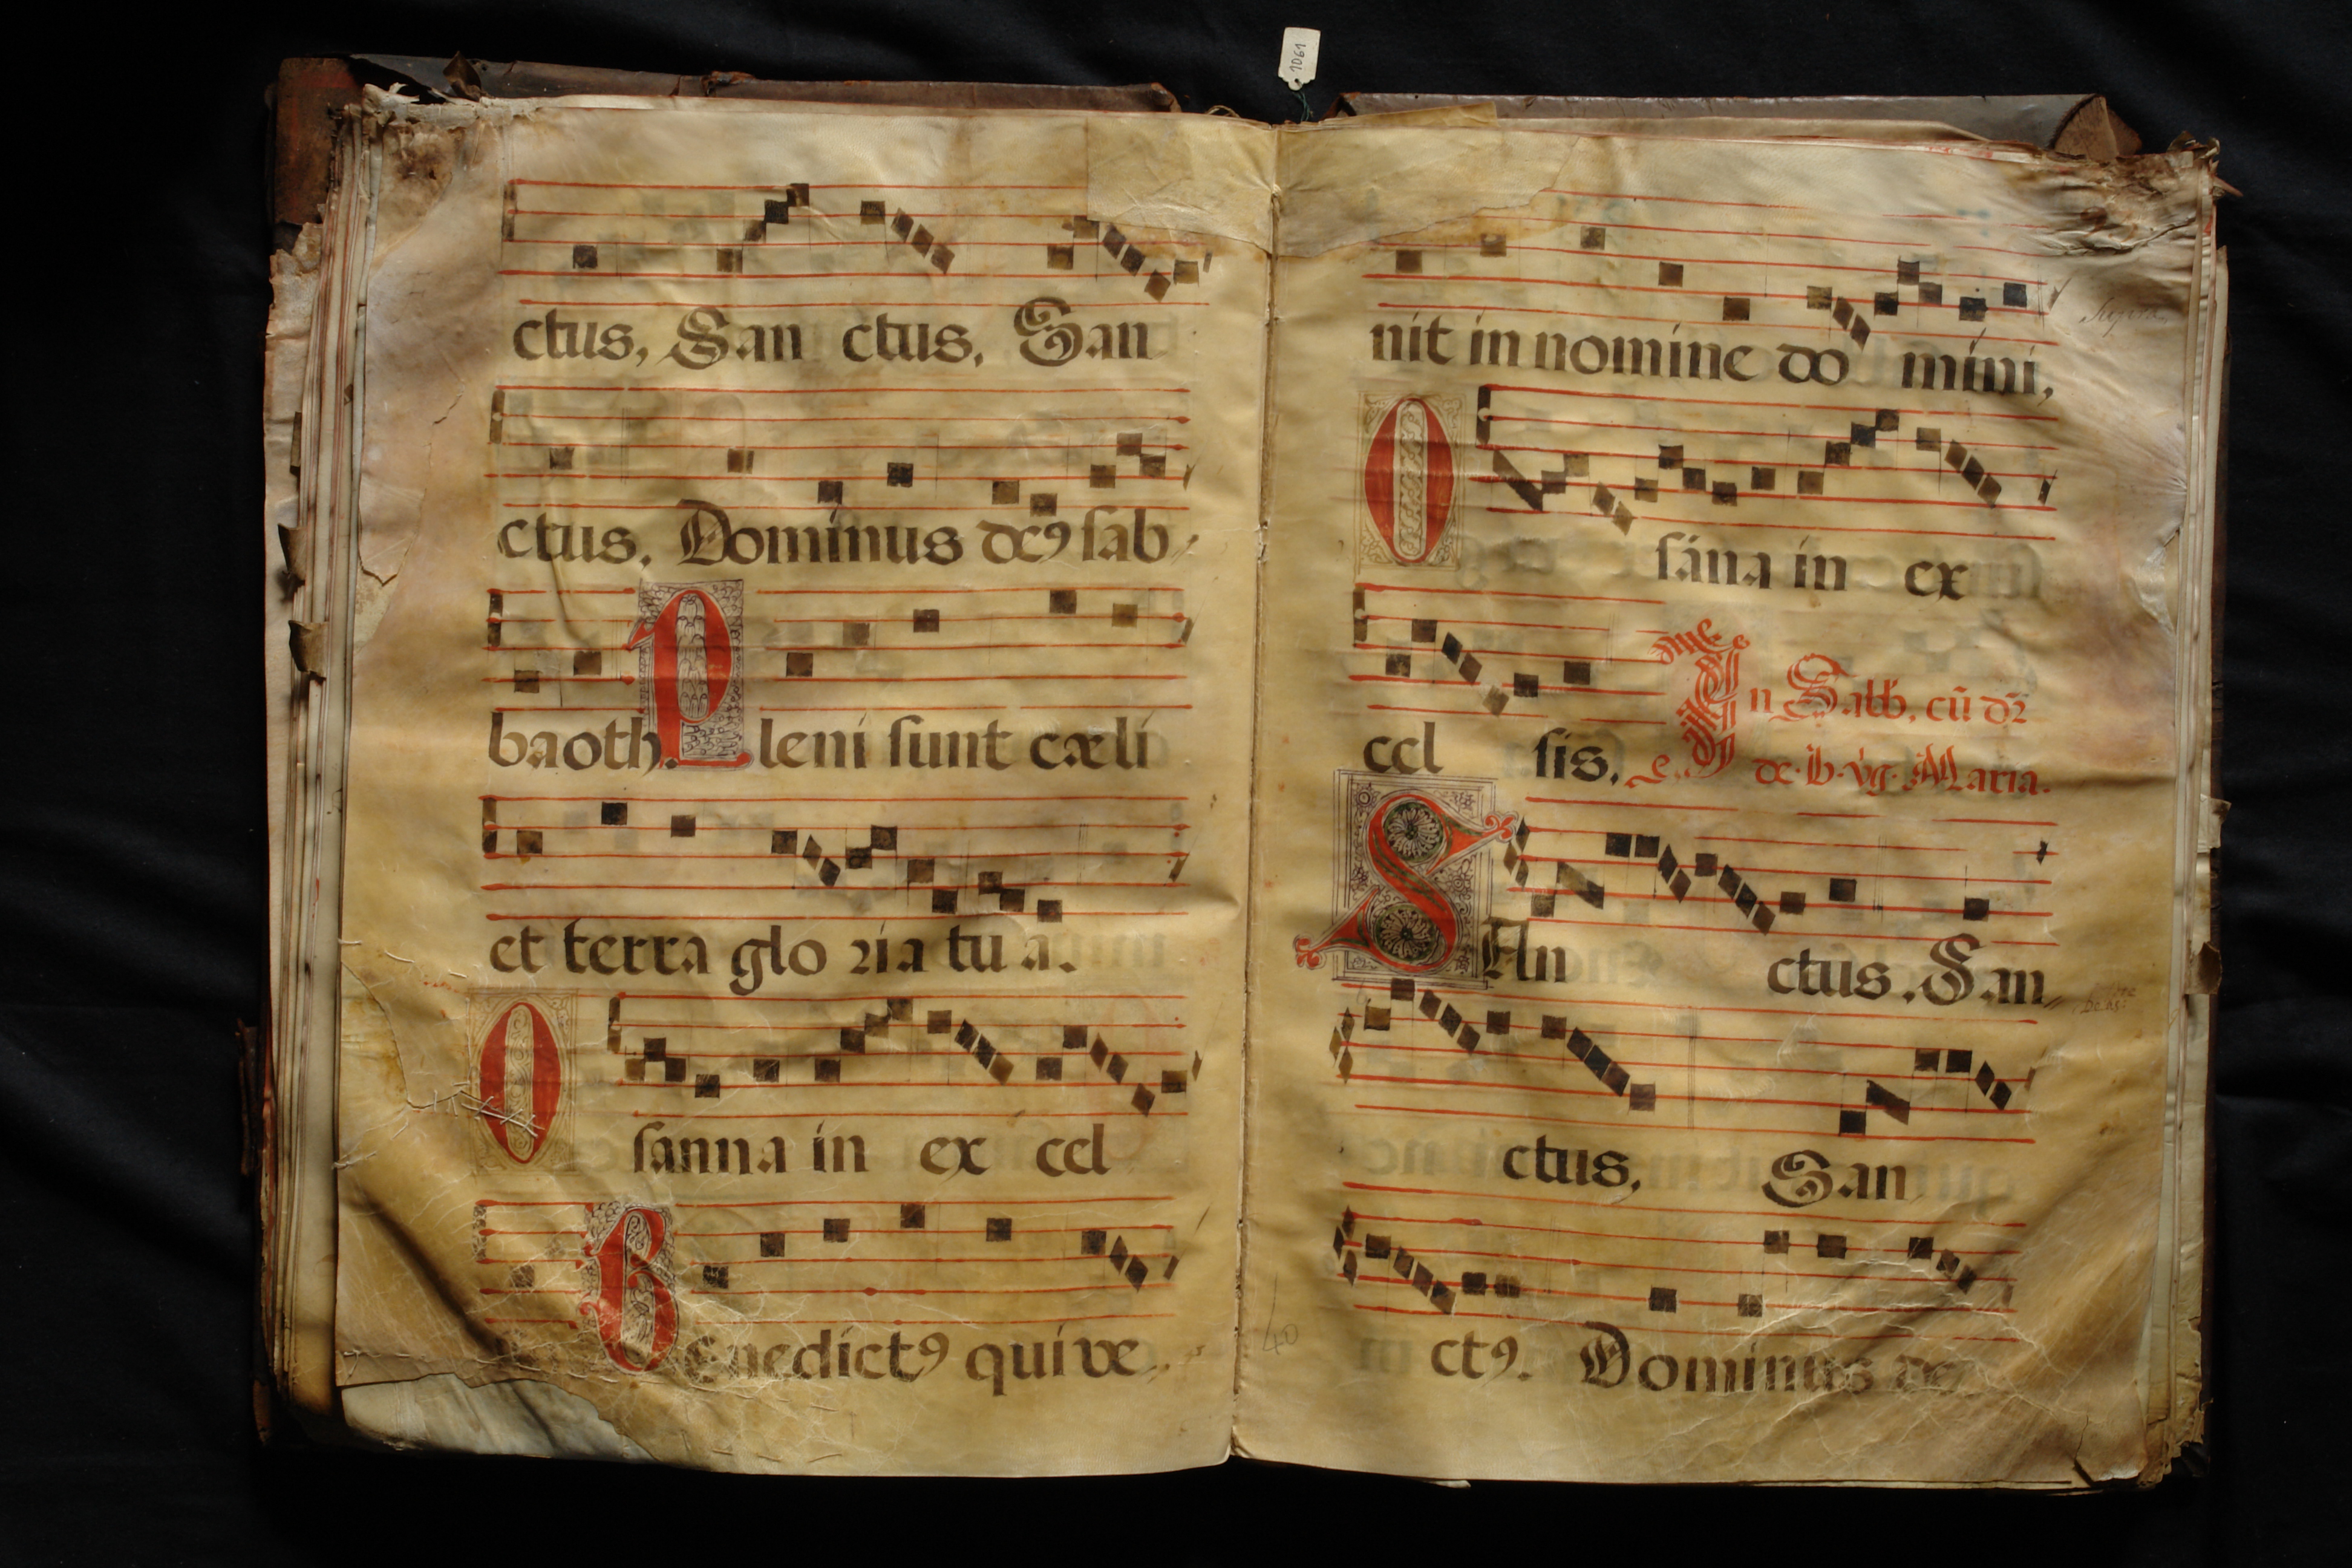 1061
ctus, San ctus, San
ctus, Dominus deꝰ sab
baoth. Pleni sunt cæli
et terra glo ria tu a.
Osanna in ex cel
BEnedictꝰ qui ve
nit in nomine do mini,
Osána in ex
cel sis,
In Sabb. cū dr̄
de. b. vg. Maria.
SAn ctus, San
ctus, San
ctꝰ. Dominus de
40